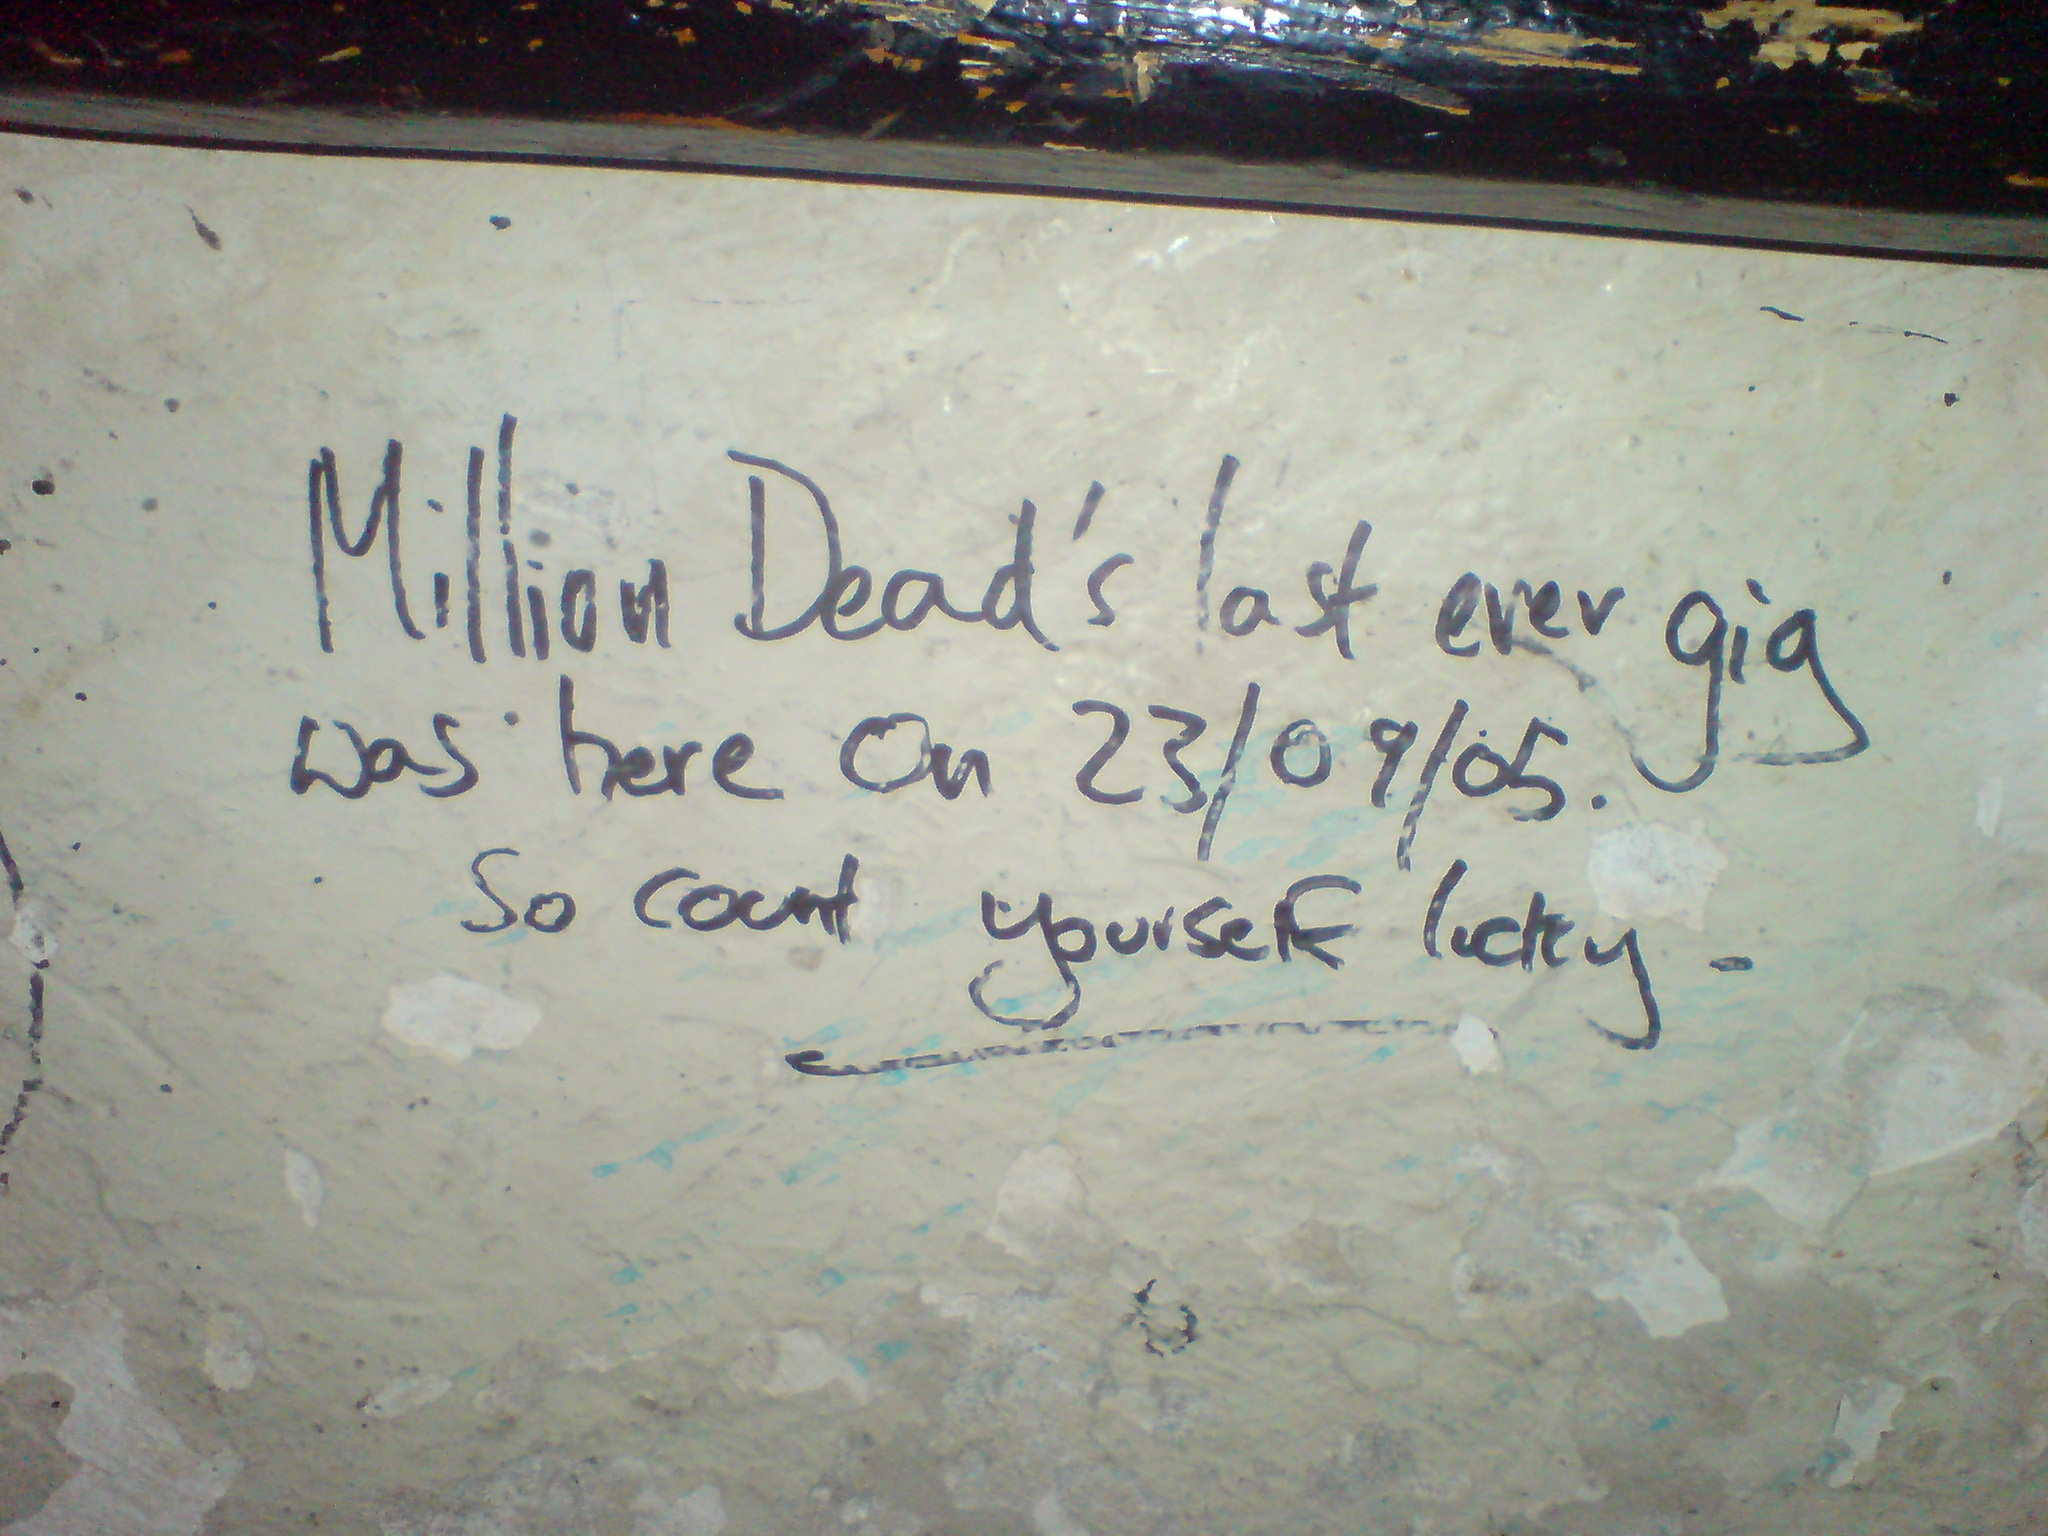 Million Dead's last ever gig
was here on 23/09/05.
So count yourself lucky-